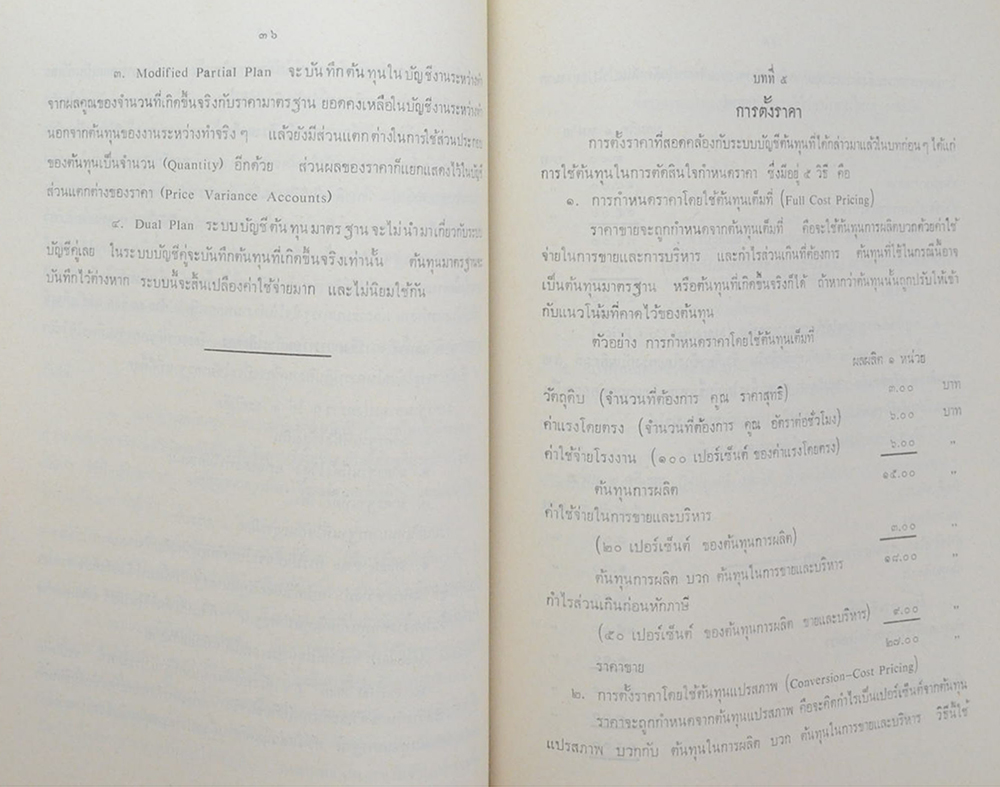 ๓๖
๓. Modified Partial Plan จะบันทึกต้นทุนในบัญชีงานระหว่างทำ
จากผลคูณของจำนวนที่เกิดขึ้นจริงกับราคามาตรฐาน ยอดคงเหลือในบัญชีงานระหว่างทำ
นอกจากต้นทุนของงานระหว่างทำจริง ๆ แล้วยังมีส่วนแตกต่างในการใช้ส่วนประกอบ
ของต้นทุนเป็นจำนวน (Quantity) อีกด้วย ส่วนผลของราคาก็แยกแสดงไว้ในบัญชี
ส่วนแตกต่างของราคา (Price Variance Accounts)
๔. Dual Plan ระบบบัญชีต้นทุนมาตรฐานจะไม่นำมาเกี่ยวกับระบบ
บัญชีคู่เลย ในระบบบัญชีคู่จะบันทึกต้นทุนที่เกิดขึ้นจริงเท่านั้น ต้นทุนมาตรฐานจะ
บันทึกไว้ต่างหาก ระบบนี้จะสิ้นเปลืองค่าใช้จ่ายมาก และไม่นิยมใช้กัน
บทที่ ๕
การตั้งราคา
การตั้งราคาที่สอดคล้องกับระบบบัญชีต้นทุนที่ได้กล่าวมาแล้วในบทก่อน ๆ ได้แก่
การใช้ต้นทุนในการตัดสินใจกำหนดราคา ซึ่งมีอยู่ ๕ วิธี คือ
๑. การกำหนดราคาโดยใช้ต้นทุนเต็มที่ (Full Cost Pricing)
ราคาขายจะถูกกำหนดจากต้นทุนเต็มที่ คือจะใช้ต้นทุนการผลิตบวกด้วยค่าใช้
จ่ายในการขายและการบริหาร และกำไรส่วนเกินที่ต้องการ ต้นทุนที่ใช้ในกรณีนี้อาจ
เป็นต้นทุนมาตรฐาน หรือต้นทุนที่เกิดขึ้นจริงก็ได้ ถ้าหากว่าต้นทุนนั้นถูกปรับให้เข้า
กับแนวโน้มที่คาดไว้ของต้นทุน
ตัวอย่าง การกำหนดราคาโดยใช้ต้นทุนเต็มที่
ผลผลิต ๑ หน่วย
วัตถุดิบ (จำนวนที่ต้องการ คูณ ราคาสุทธิ) ๓.๐๐ บาท
ค่าแรงโดยตรง (จำนวนที่ต้องการ คูณ อัตราต่อชั่วโมง) ๖.๐๐ บาท
ค่าใช้จ่ายโรงงาน (๑๐๐ เปอร์เซ็นต์ ของค่าแรงโดยตรง) ๖.๐๐ "
ต้นทุนการผลิต ๑๕.๐๐ "
ค่าใช้จ่ายในการขายและบริหาร
(๒๐ เปอร์เซ็นต์ ของต้นทุนการผลิต) ๓.๐๐ "
ต้นทุนการผลิต บวก ต้นทุนในการขายและบริหาร ๑๘.๐๐ "
กำไรส่วนเกินก่อนหักภาษี
(๕๐ เปอร์เซ็นต์ ของต้นทุนการผลิต ขายและบริหาร) ๙.๐๐ "
ราคาขาย ๒๗.๐๐ "
๒. การตั้งราคาโดยใช้ต้นทุนแปรสภาพ (Conversion-Cost Pricing)
ราคาจะถูกกำหนดจากต้นทุนแปรสภาพ คือจะคิดกำไรเป็นเปอร์เซ็นต์จากต้นทุน
แปรสภาพ บวกกับ ต้นทุนในการผลิต บวก ต้นทุนในการขายและบริหาร วิธีนี้ใช้